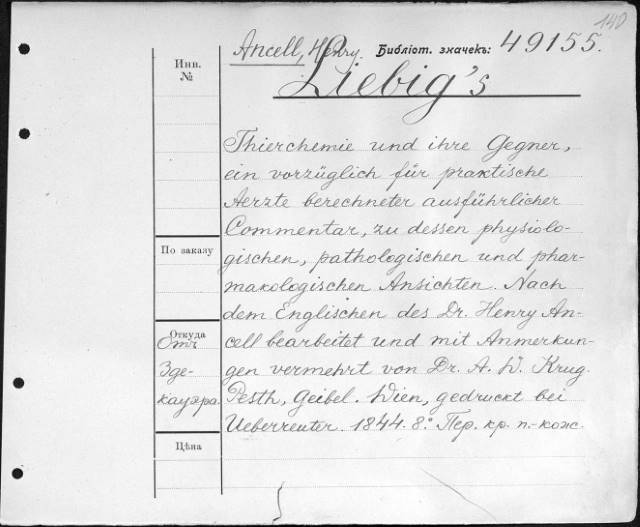 140
Ancell, Henry. Библіот. значекъ: 49155.
Инв.
№
Liebig's
Thierchemie und ihre Gegner,
ein vorzüglich für praktische
Aerzte berechneter ausführlicher
Commentar, zu dessen physiolo-
По заказу
gischen, pathologischen und phar-
makologischen Ansichten. Nach
dem Englischen des Dr. Henry An-
Откуда
Отъ
cell bearbeitet und mit Anmerkun-
Зде-
gen vermehrt von Dr. A. W. Krug.
кауэра.
Pesth, Geibel. Wien, gedruckt bei
Ueberreuter. 1844. 8.° Пер. кр. п.-кож.
Цѣна